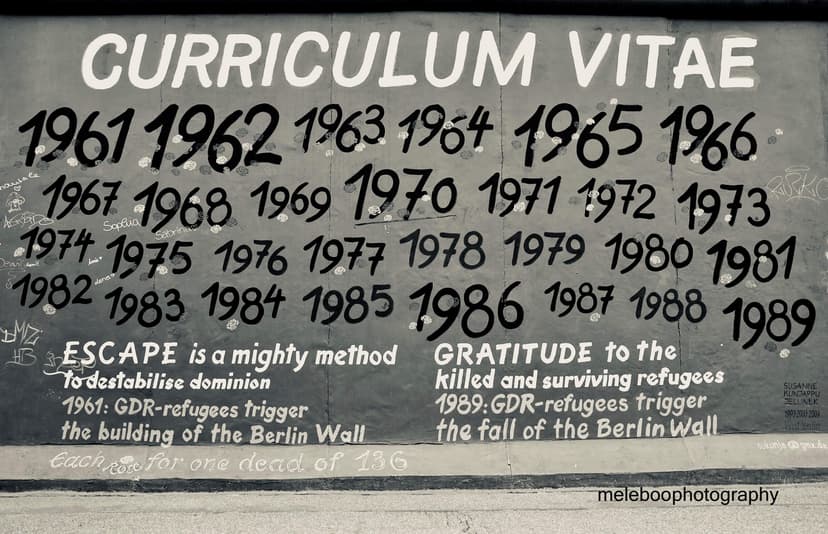 CURRICULUM VITAE
1961 1962 1963 1964 1965 1966
1967 1968 1969 1970 1971 1972 1973
1974 1975 1976 1977 1978 1979 1980 1981
1982 1983 1984 1985 1986 1987 1988 1989
Sophia
ESCAPE is a mighty method
to destabilise dominion
1961: GDR-refugees trigger
the building of the Berlin Wall
GRATITUDE to the
killed and surviving refugees
1989: GDR-refugees trigger
the fall of the Berlin Wall
SUSANNE
KUNJAPPU
JELLINEK
Each Rose for one dead of 136
meleboophotography